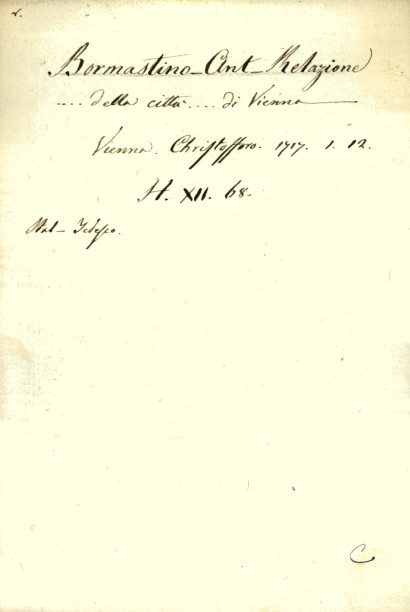 1.
Bormastino_Ant_Relazione
.... della citta .... di Vienna
Vienna. Christofforo. 1717. 1. 12.
H. XII. 68.
Ital_Tedesco.
C